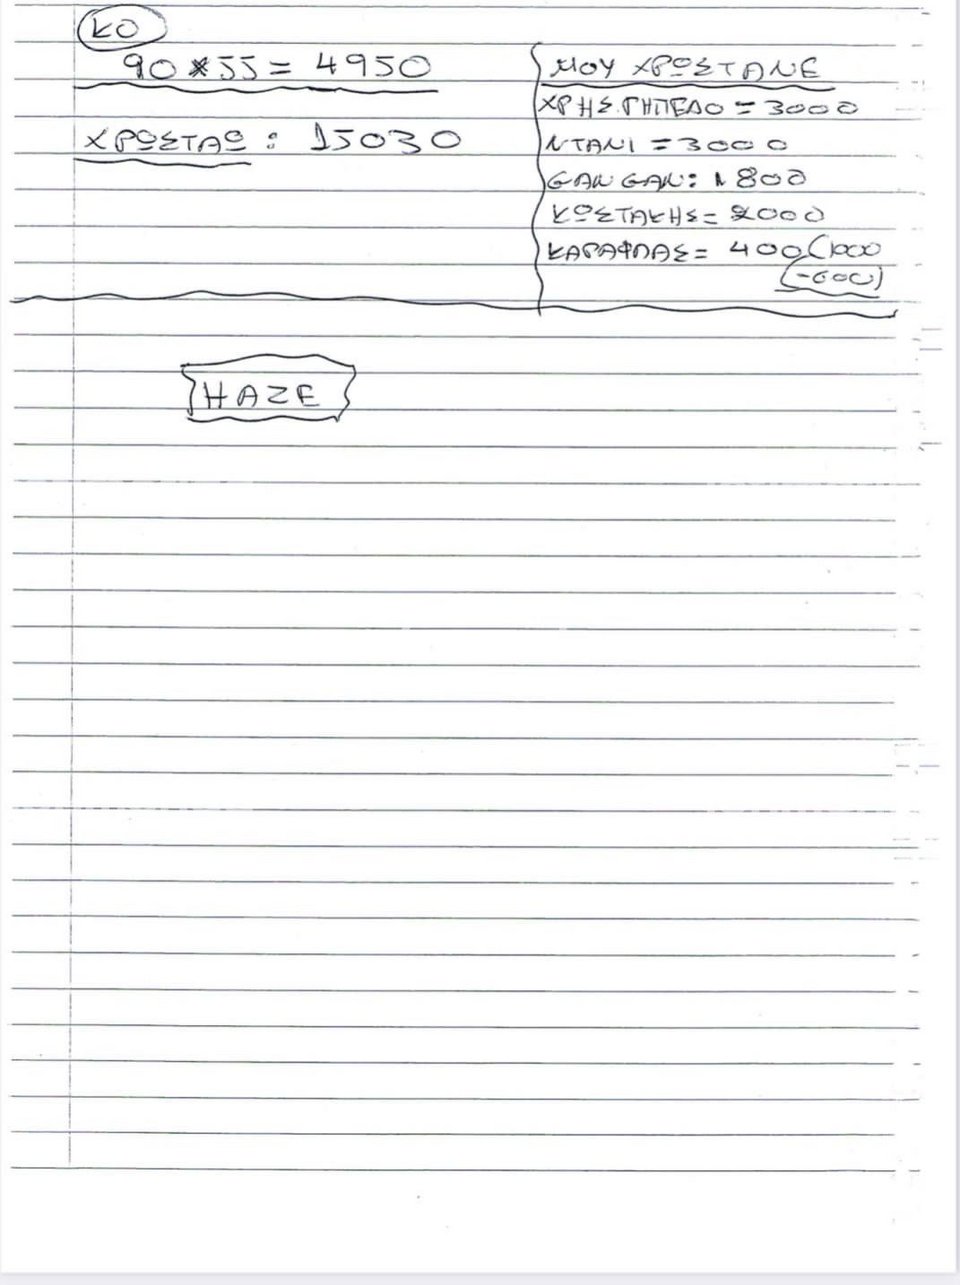 ΚΟ
90*55 = 4950
ΧΡΩΣΤΑΩ : 15030
ΜΟΥ ΧΡΩΣΤΑΝΕ
ΧΡΗΣ. ΓΗΠΕΔΟ = 3000
ΝΤΑΝΙ = 3000
GAN GAN: 1800
ΚΩΣΤΑΚΗΣ = 2000
= 400 (1000
(-600)
HAZE